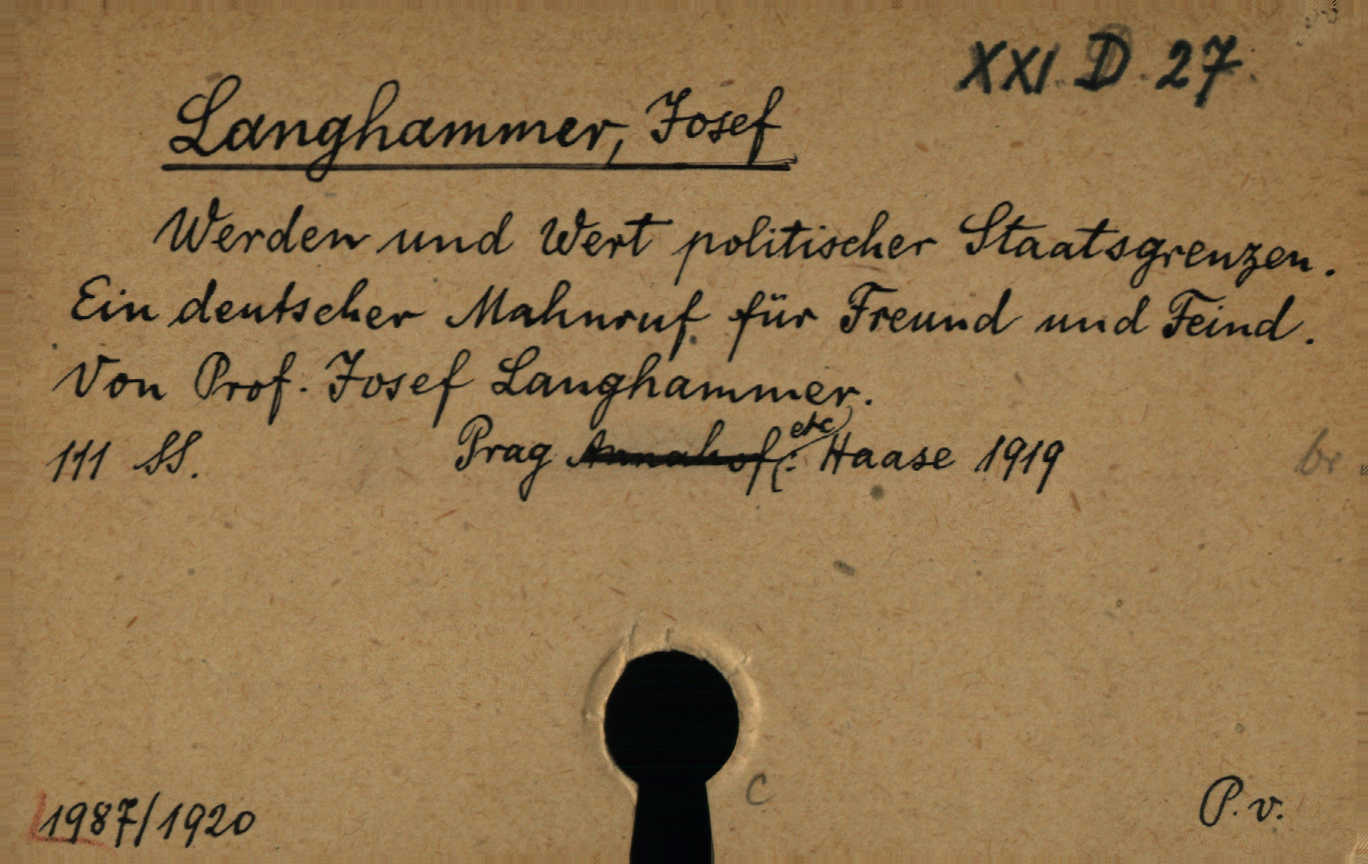 XXI. D. 27.
Langhammer, Josef
Werden und Wert politischer Staatsgrenzen.
Ein deutscher Mahnruf für Freund und Feind.
Von Prof. Josef Langhammer.
111 SS. Prag Annahof etc: Haase 1919
br.
C
1987/1920 P. v.